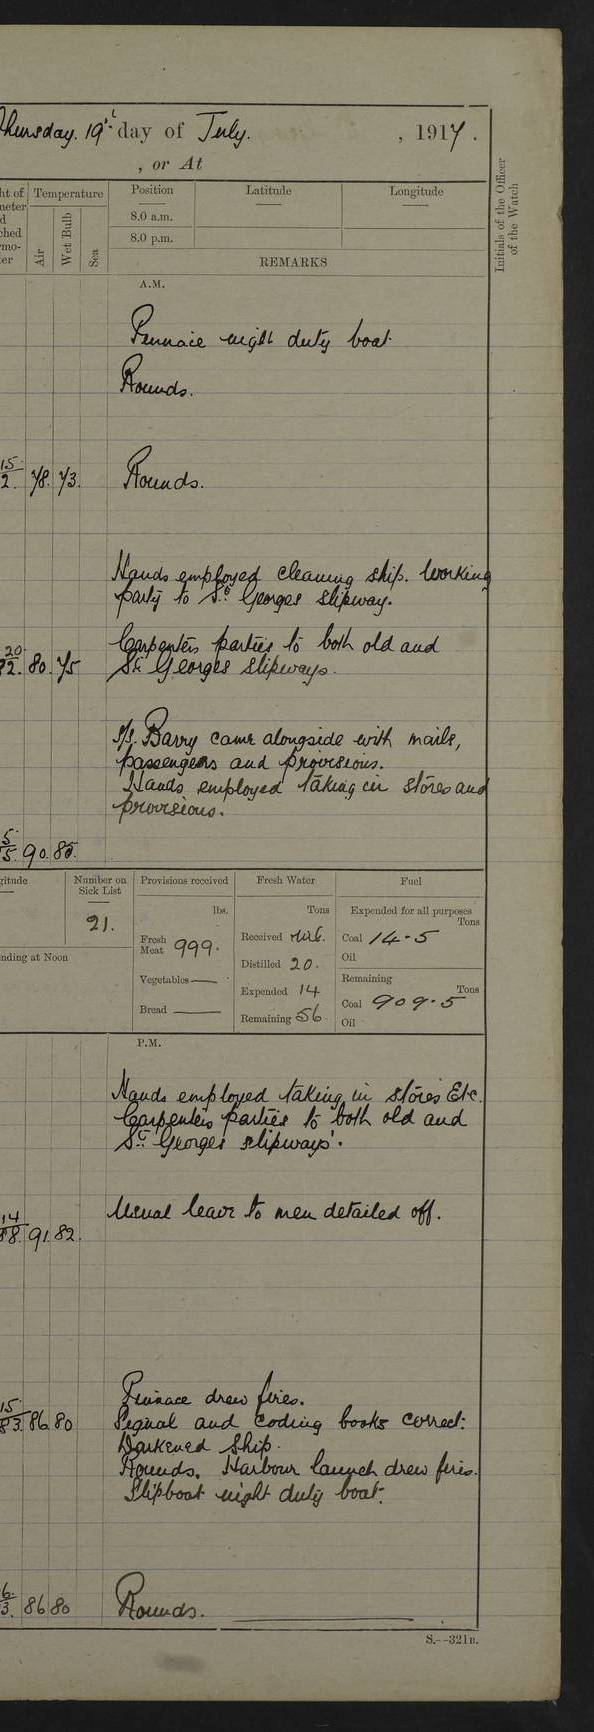 Thursday. 19th day of July. , 1917.
, or At
ht of
meter
d
ched
mo-
ter
Temperature
Air
Wet Bulb
Sea
Position
8.0 a.m.
8.0 p.m.
Latitude
Longitude
Initials of the Officer
of the Watch
REMARKS
A.M.
Pinnace night duty boat
Rounds.
15
2. 78. 73. Rounds.
Hands employed cleaning ship. Working
party to St. Georges slipway.
Carpenters parties to both old and
20
82. 80. 75 St. Georges slipways.
s/s. Barry came alongside with mails,
passengers and provisions.
Hands employed taking in stores and
provisions.
5
5. 90. 85.
gitude
Number on
Sick List
21.
nding at Noon
Provisions received
lbs.
Fresh
Meat 999.
Vegetables —
Bread —
Fresh Water
Tons
Received Nil.
Distilled 20.
Expended 14
Remaining 56.
Fuel
Expended for all purposes
Tons
Coal 14.5
Oil
Remaining
Tons
Coal 909.5
Oil
P.M.
Hands employed taking in stores Etc.
Carpenters parties to both old and
St. Georges slipways.
Usual leave to men detailed off.
14
88. 91. 82.
Pinnace drew fires.
15
83. 86 80 Signal and coding books correct.
Darkened Ship.
Rounds. Harbour launch drew fires.
Slipboat night duty boat.
6
3. 86 80 Rounds.
S.—321B.